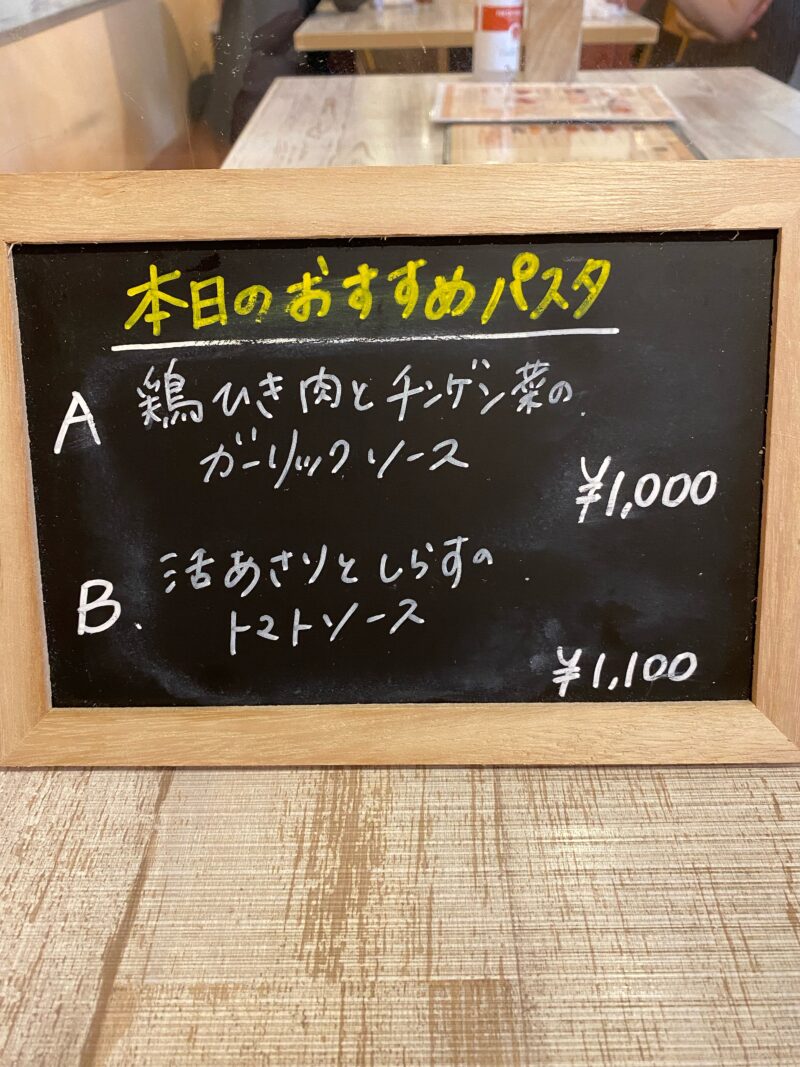 本日のおすすめパスタ
A 鶏ひき肉とチンゲン菜の
ガーリックソース
¥1,000
B. 活あさりとしらすの
トマトソース
¥1,100